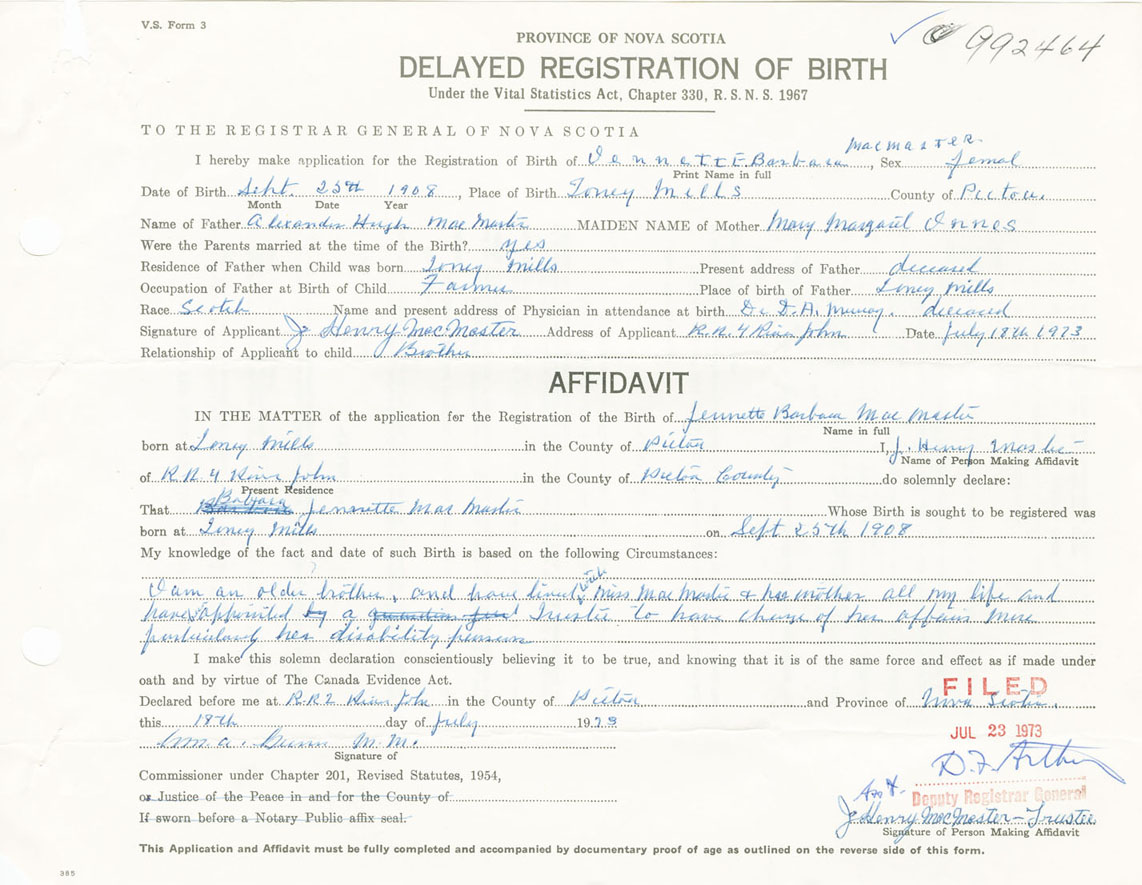 V.S. Form 3
PROVINCE OF NOVA SCOTIA
992464
DELAYED REGISTRATION OF BIRTH
Under the Vital Statistics Act, Chapter 330, R. S. N. S. 1967
TO THE REGISTRAR GENERAL OF NOVA SCOTIA
macmaster
I hereby make application for the Registration of Birth of Jennette Barbara, Sex femal
Print Name in full
Date of Birth Sept. 25th 1908, Place of Birth Toney Mills County of Pictou.
Month Date Year
Name of Father Alexander Hugh MacMaster MAIDEN NAME of Mother Mary Margaret Innes
Were the Parents married at the time of the Birth? yes
Residence of Father when Child was born Toney Mills Present address of Father deceased
Occupation of Father at Birth of Child Farmer Place of birth of Father Toney Mills
Race Scotch Name and present address of Physician in attendance at birth Dr. D. A. Murray. deceased
Signature of Applicant J Henry MacMaster Address of Applicant R.R. 4 River John Date July 18th 1973
Relationship of Applicant to child Brother
AFFIDAVIT
IN THE MATTER of the application for the Registration of the Birth of Jennette Barbara Mac Master
Name in full
born at Toney Mills in the County of Pictou I, J. Henry Master
Name of Person Making Affidavit
of R.R. 4 River John in the County of Pictou County do solemnly declare:
Present Residence
Barbara
That Jennette Mac Master Whose Birth is sought to be registered was
born at Toney Mills on Sept 25th 1908
My knowledge of the fact and date of such Birth is based on the following Circumstances:
I am an older brother, and have lived with Miss MacMaster & her mother all my life and
have appointed by a Trustee to have charge of her affairs more
particularly her disability pension
I make this solemn declaration conscientiously believing it to be true, and knowing that it is of the same force and effect as if made under
oath and by virtue of The Canada Evidence Act.
Declared before me at R.R.2 River John in the County of Pictou and Province of Nova Scotia.
FILED
this 18th day of July 1973
JUL 23 1973
M.M.
Signature of
D.F. Arthur
Commissioner under Chapter 201, Revised Statutes, 1954,
or Justice of the Peace in and for the County of
Deputy Registrar General
If sworn before a Notary Public affix seal.
J Henry MacMaster - Trustee
Signature of Person Making Affidavit
This Application and Affidavit must be fully completed and accompanied by documentary proof of age as outlined on the reverse side of this form.
385